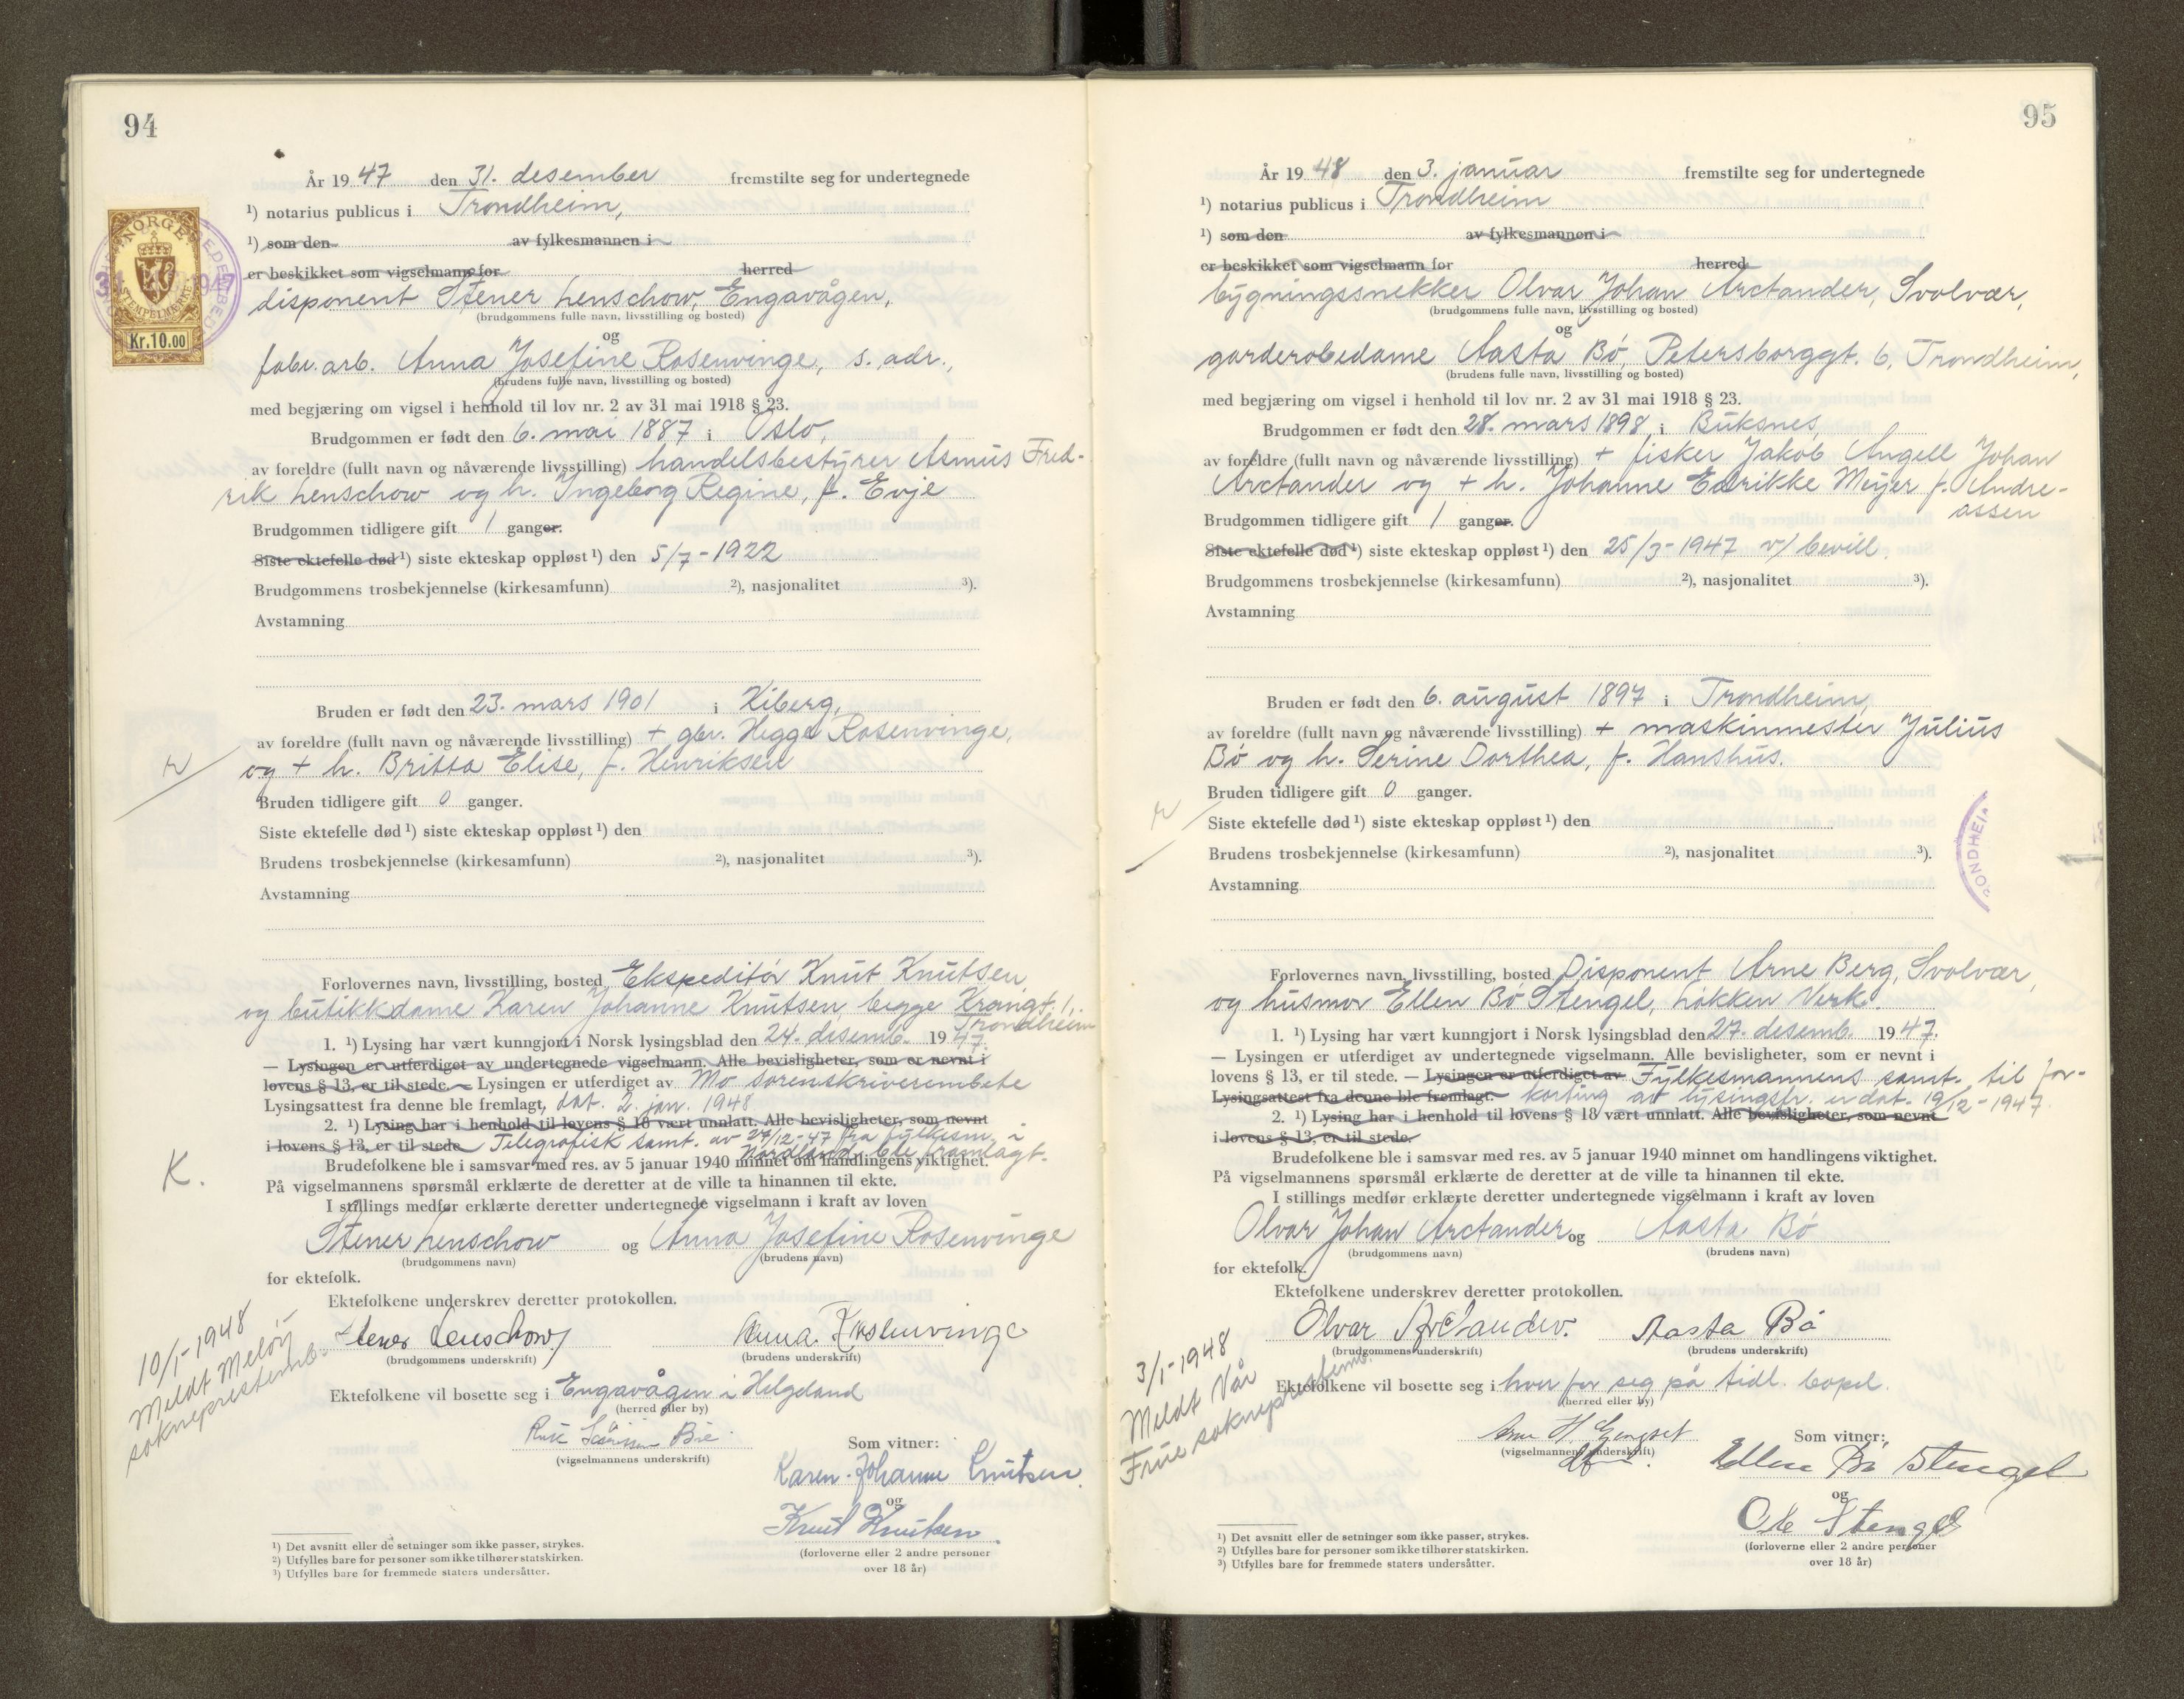 94
År 1947 den 31. desember fremstilte seg for undertegnede
¹) notarius publicus i Trondheim,
¹) som den av fylkesmannen i
er beskikket som vigselmann for herred
NORGE
STEMPELMERKE
Kr.10.00
disponent Stener Lenschow, Engavågen,
(brudgommens fulle navn, livsstilling og bosted)
og
fabr. arb. Anna Josefine Rosenvinge, s. adr.,
(brudens fulle navn, livsstilling og bosted)
med begjæring om vigsel i henhold til lov nr. 2 av 31 mai 1918 § 23.
Brudgommen er født den 6. mai 1887 i Oslo,
av foreldre (fullt navn og nåværende livsstilling) handelsbestyrer Asmus Fred-
rik Lenschow og h. Ingeborg Regine, f. Evje
Brudgommen tidligere gift 1 ganger.
Siste ektefelle død ¹) siste ekteskap oppløst ¹) den 5/7-1922
Brudgommens trosbekjennelse (kirkesamfunn) ²), nasjonalitet ³).
Avstamning
Bruden er født den 23. mars 1901 i Kiberg,
av foreldre (fullt navn og nåværende livsstilling) + gbr. Hegge Rosenvinge,
og + h. Britta Elise, f. Henriksen
Bruden tidligere gift 0 ganger.
Siste ektefelle død ¹) siste ekteskap oppløst ¹) den
Brudens trosbekjennelse (kirkesamfunn) ²), nasjonalitet ³).
Avstamning
Forlovernes navn, livsstilling, bosted Ekspeditör Knut Knutsen,
og butikkdame Karen Johanne Knutsen, begge Krangt. 1,
Trondheim
1. ¹) Lysing har vært kunngjort i Norsk lysingsblad den 24. desemb. 1947.
— Lysingen er utferdiget av undertegnede vigselmann. Alle bevisligheter, som er nevnt i
lovens § 13, er til stede. — Lysingen er utferdiget av Mo sorenskriverembete
Lysingsattest fra denne ble fremlagt, dat. 2. jan. 1948
2. ¹) Lysing har i henhold til lovens § 18 vært unnlatt. Alle bevisligheter, som nevnt
i lovens § 13, er til stede Telegrafisk samt. av 27/12-47 fra fylkesm. i
Nordland ble framlagt.
Brudefolkene ble i samsvar med res. av 5 januar 1940 minnet om handlingens viktighet.
K.
På vigselmannens spørsmål erklærte de deretter at de ville ta hinannen til ekte.
I stillings medfør erklærte deretter undertegnede vigselmann i kraft av loven
Stener Lenschow og Anna Josefine Rosenvinge
(brudgommens navn) (brudens navn)
for ektefolk.
Ektefolkene underskrev deretter protokollen.
Stener Lenschow Anna Rosenvinge
(brudgommens underskrift) (brudens underskrift)
10/1-1948
Meldt Meløy
sokneprestemb.
Ektefolkene vil bosette seg i Engavågen i Helgeland
(herred eller by)
(vigselmannens underskrift)
Som vitner:
Karen Johanne Knutsen
og
Knut Knutsen
(forloverne eller 2 andre personer
over 18 år)
¹) Det avsnitt eller de setninger som ikke passer, strykes.
²) Utfylles bare for personer som ikke tilhører statskirken.
³) Utfylles bare for fremmede staters undersåtter.
95
År 1948 den 3. januar fremstilte seg for undertegnede
¹) notarius publicus i Trondheim
¹) som den av fylkesmannen i
er beskikket som vigselmann for herred
bygningssnekker Olvar Johan Arctander, Svolvær,
(brudgommens fulle navn, livsstilling og bosted)
og
garderobedame Aasta Bö, Petersborggt. 6, Trondheim,
(brudens fulle navn, livsstilling og bosted)
med begjæring om vigsel i henhold til lov nr. 2 av 31 mai 1918 § 23.
Brudgommen er født den 28. mars 1898 i Buksnes,
av foreldre (fullt navn og nåværende livsstilling) + fisker Jakob Angell Johan
Arctander og + h. Johanne Edrikke Meyer f. Andre-
assen
Brudgommen tidligere gift 1 ganger.
Siste ektefelle død ¹) siste ekteskap oppløst ¹) den 25/3-1947 v/ bevill.
Brudgommens trosbekjennelse (kirkesamfunn) ²), nasjonalitet ³).
Avstamning
Bruden er født den 6. august 1897 i Trondheim,
av foreldre (fullt navn og nåværende livsstilling) + maskinmester Julius
Bö og h. Serine Dorthea, f. Hanshus.
Bruden tidligere gift 0 ganger.
Siste ektefelle død ¹) siste ekteskap oppløst ¹) den
Brudens trosbekjennelse (kirkesamfunn) ²), nasjonalitet ³).
Avstamning
ONDHEI
Forlovernes navn, livsstilling, bosted Disponent Arne Berg, Svolvær,
og husmor Ellen Bö Stengel, Lökken Verk.
1. ¹) Lysing har vært kunngjort i Norsk lysingsblad den 27. desemb. 1947.
— Lysingen er utferdiget av undertegnede vigselmann. Alle bevisligheter, som er nevnt i
lovens § 13, er til stede. — Lysingen er utferdiget av Fylkesmannens samt. til for-
Lysingsattest fra denne ble fremlagt. korting av lysingsfr. er dat. 19/12-1947
2. ¹) Lysing har i henhold til lovens § 18 vært unnlatt. Alle bevisligheter, som nevnt
i lovens § 13, er til stede.
Brudefolkene ble i samsvar med res. av 5 januar 1940 minnet om handlingens viktighet.
På vigselmannens spørsmål erklærte de deretter at de ville ta hinannen til ekte.
I stillings medfør erklærte deretter undertegnede vigselmann i kraft av loven
Olvar Johan Arctander og Aasta Bö
(brudgommens navn) (brudens navn)
for ektefolk.
Ektefolkene underskrev deretter protokollen.
Olvar Arctander. Aasta Bö
(brudgommens underskrift) (brudens underskrift)
3/1-1948
Meldt Vår
Frue sokneprestemb.
Ektefolkene vil bosette seg i hver for seg på tidl. bopel.
(herred eller by)
(vigselmannens underskrift)
Som vitner:
Ellen Bö Stengel
og
Stengel
(forloverne eller 2 andre personer
over 18 år)
¹) Det avsnitt eller de setninger som ikke passer, strykes.
²) Utfylles bare for personer som ikke tilhører statskirken.
³) Utfylles bare for fremmede staters undersåtter.